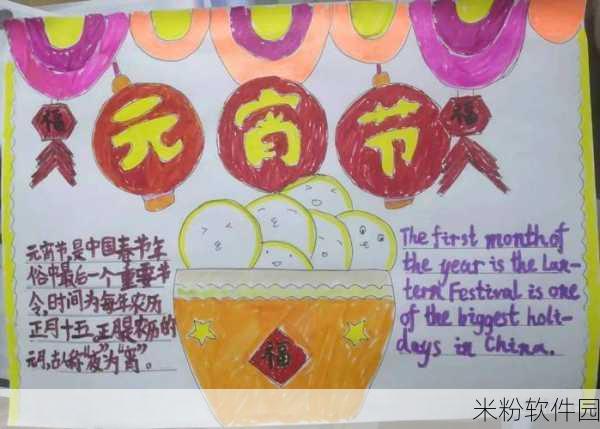 元宵节
福
福
元宵节,是中国春节年
俗中最后一个重要节
令,时间为每年农历
正月十五。正月是农历的
元月,古人称“夜”为“宵”。
The first month of
the year is the Lan-
tern Festival is one
of the biggest holi-
days in China.
福
米粉软件园